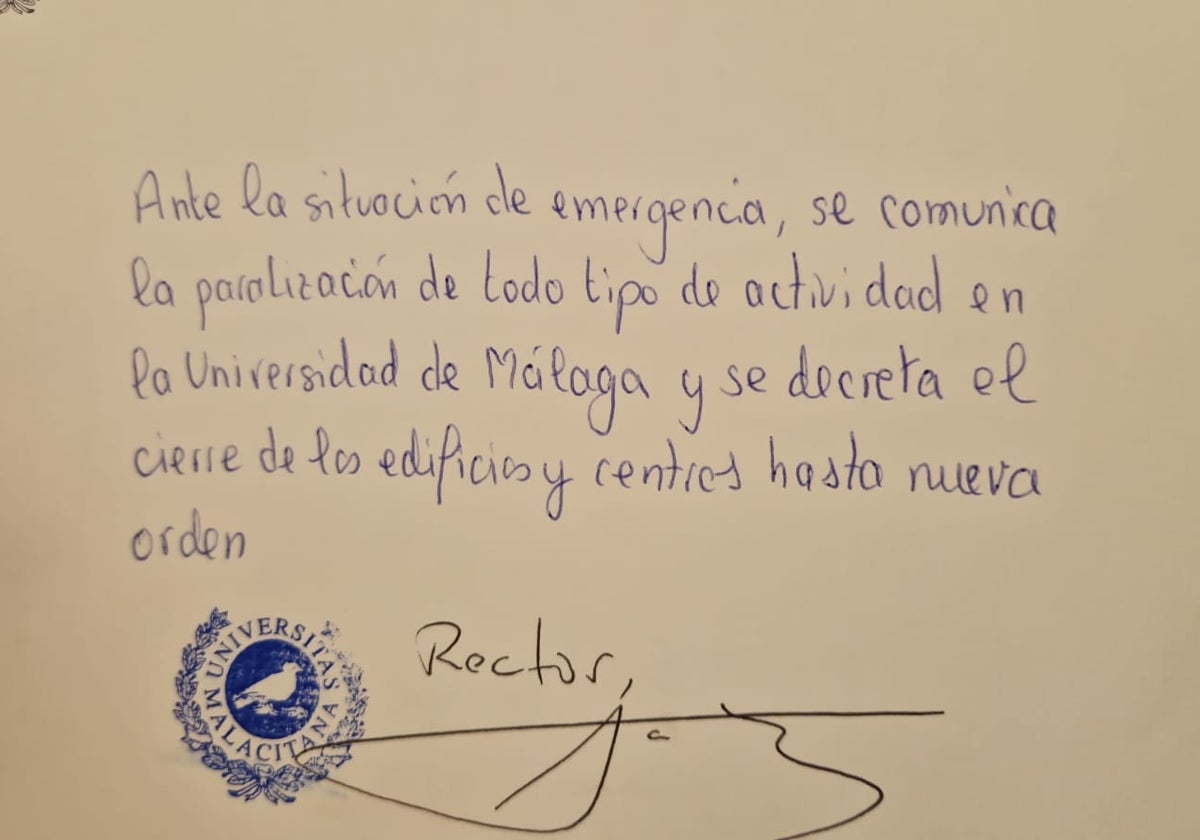 Ante la situación de emergencia, se comunica
la paralización de todo tipo de actividad en
la Universidad de Málaga y se decreta el
cierre de los edificios y centros hasta nueva
orden
UNIVERSITAS
MALACITANA
Rector,